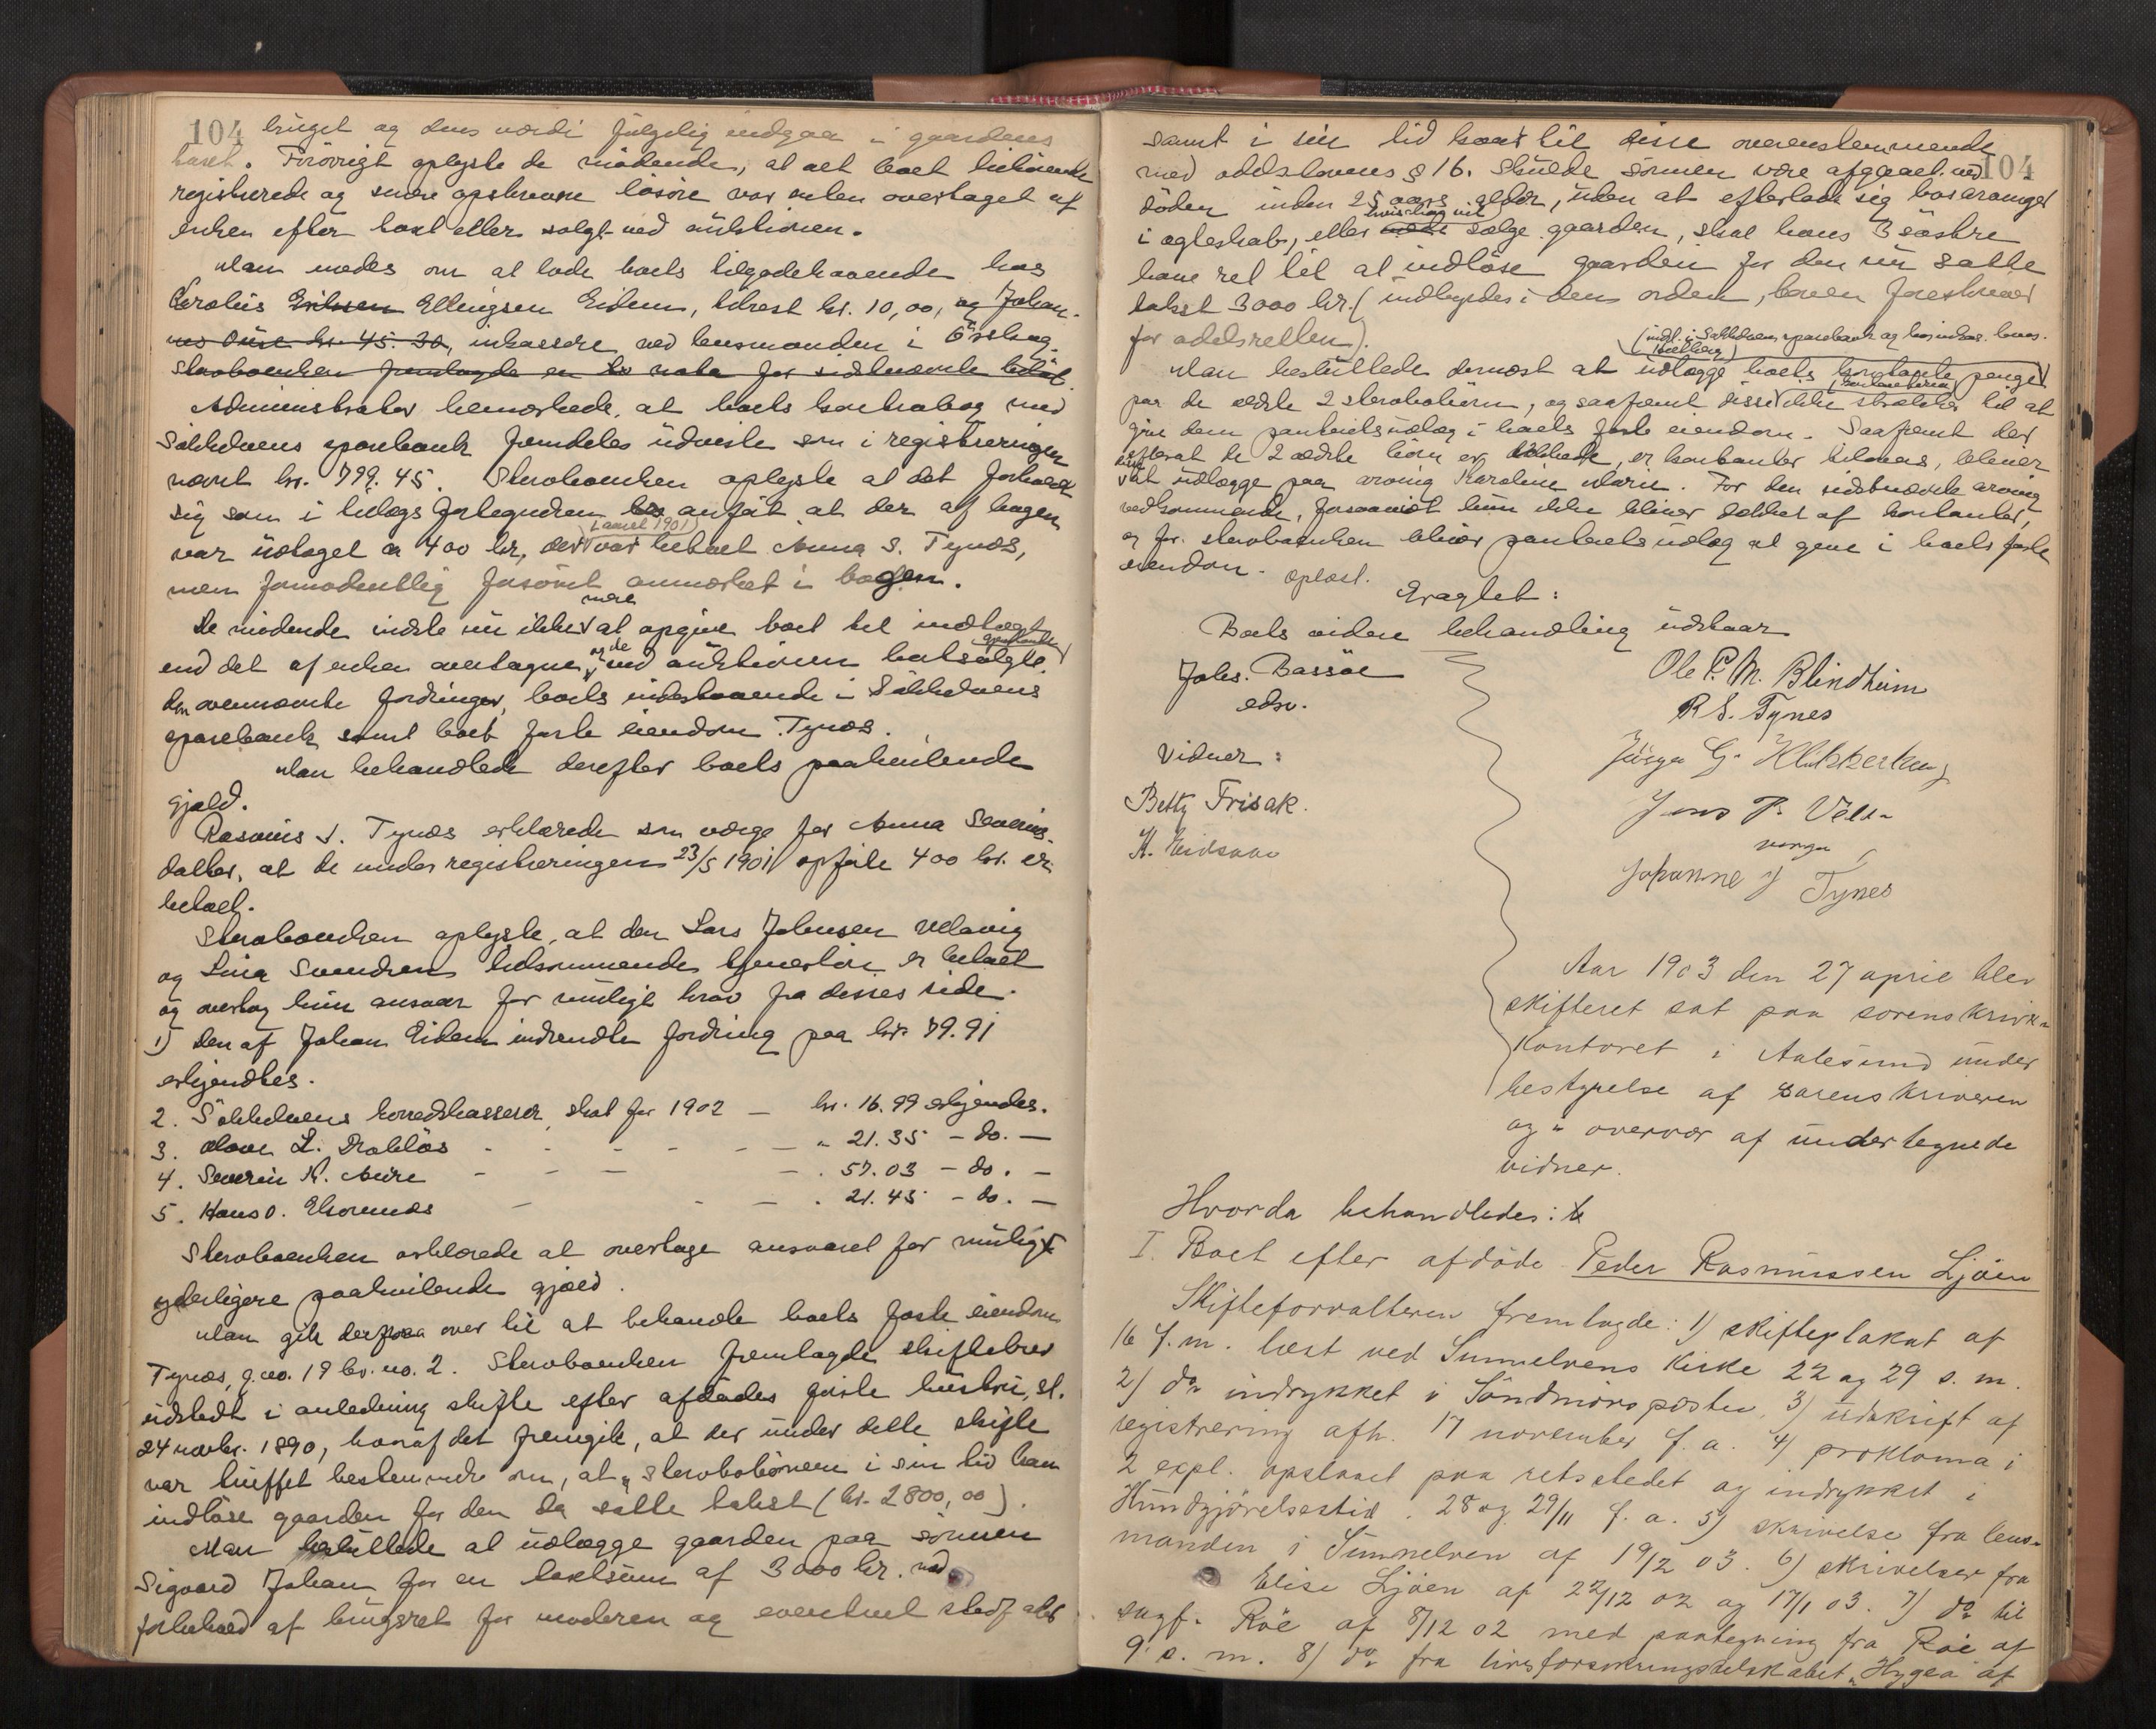 104 bruget og dens værdi følgelig indgaar i gaardens
takst. Forøvrigt oplyste de mødende, at alt boet tilhørende
registrerede og senere opskrevne løsøre var enten overtaget af
enken efter takst eller solgt ved auktionen.
Man enedes om at lade boets tilgodehavende hos
Karolus Eriksen Ellingsen Eidem, tilrest kr. 10,00, og Johan-
nes Øure kr. 45.30, inkassere ved lensmanden i Ørskog.
Stervboenken fremlagde en nota for sidstnævnte beløb.
Administrator bemærkede, at boets kontrabog med
Søkkelvens sparebank fremdeles udviste som i registreringen
nævnt kr. 799.45. Stervboenken oplyste at det forholder
sig som i tillægs forlegnden anført at der af bogen
var udtaget 400 kr, der (anul 1901) var betalt Anna S. Tynæs,
men formodentlig forsømt anmærket i bogen.
De mødende vidste nu ikke mere at opgive boet til indtægt
end det af enken overtagne, og de ved auktionen bortsolgte gjenstande,
den ovennævnte fordringer, boets indestaaende i Søkkelvens
sparebank samt boets faste eiendom Tynæs.
Man behandlede derefter boets paahvilende
gjæld.
Rasmus S. Tynæs erklærede som værge for Anna Severins-
datter, at de under registreringen 23/5 1901 opførte 400 kr. er
betalt.
Stervboenken oplyste, at den Lars Johnsen Velavig
og Lina Svendsen tilkommende tjenerløn er betalt
og overtog hun ansvar for muligt krav fra disses side.
1) Den af Johan Eidem indsendte fordring paa kr. 79.91
erkjendtes.
2. Søkkelvens herredskasserer, skat for 1902 — kr. 16.99 erkjendes.
3. L. Drotløs - - - - — " 21.35 - do. —
4. Severin K. Aure - - — - . 57.03 - do. -
5. Hans O. - - — . 21.45 - do. —
Stervboenken erklærede at overtage ansvaret for muligt
yderligere paahvilende gjæld.
Man gik derpaa over til at behandle boets faste eiendom
Tynæs, g.no. 19 br.no. 2. Stervboenken fremlagde skiftebrev
udstedt i anledning skifte efter afdødes første hustru, sl.
24 novbr. 1890, hvoraf det fremgik, at der under dette skifte
var truffet bestemmelse om, at "stervbobørnene i sin tid kan
indløse gaarden for den da satte takst (kr. 2800,00).
Man besluttede at udlægge gaarden paa sønnen
Sigvard Johan for en taxtsum af 3000 kr. med
forbehold af brugsret for moderen og eventuel stedfader
104
samt i sin tid kaar til disse overenstemmende
med odelslovens § 16. Skulde sønnen være afgaaet ved
døden inden 25 aars alder, uden at efterlade sig livsarvinger
i ægteskab, eller hvis han vil sælge gaarden, skal hans 3 søstre
have ret til at indløse gaarden for den nu satte
takst 3000 kr. (indbyrdes i den orden, loven foreskriver
for odelsretten).
(indt. i Søkkelvens sparebank og hos indkas. lens.
Kjelberg)
Man besluttede dernæst at udlægge boets kontante penge
paa de ældste 2 stervbobørn, og saafremt disse (kontanterne) ikke strækker til at
give dem panteretsudlæg i boets faste eiendom. Saafremt der
efterat de 2 ældste børn er dækkede, er kontanter tilovers, bliver
disse at udlægge paa arving Karoline Marie. For den sidstnævnte arving
vedkommende, forsaavidt hun ikke bliver dækket af kontanter,
og for stervboenken bliver panteretsudlæg at give i boets faste
eiendom. oplæst.
Eragtet:
Boets videre behandling udstaar
Johs. Bassøe
edsv.
Ole P. M. Blindheim
R S. Tynes
Jørgen G. Klokkerhaug
Jens P. Velle
værge
Johanne J Tynes
Vidner:
Betty Frisak.
K. Eidsvaa
Aar 1903 den 27 april blev
skifteret sat paa sorenskriver-
kontoret i Aalesund under
bestyrelse af sorenskriveren
og i overvær af undertegnede
vidner.
Hvorda behandledes:
I. Boet efter afdøde Peder Rasmussen Ljøen
Skifteforvalteren fremlagde: 1) skifteplakat af
16 f.m. læst ved Sunnelvens kirke 22 og 29 s. m.
2) do indrykket i Søndmørsposten, 3) udskrift af
registrering afh. 17 november f. a. 4) proklama i
2 expl. opslaaet paa retsstedet og indrykket i
Kundgjørelsestid. 28 og 29/11 f. a. 5) skrivelse fra lens-
manden i Sunnelven af 19/2 03. 6) skrivelser fra
Elise Ljøen af 22/12 02 og 17/1 03. 7) do til
sagf. Røe af 8/12 02 med paategning fra Røe af
9 s. m. 8) do fra livsforsikringsselskabet "Hygea" af